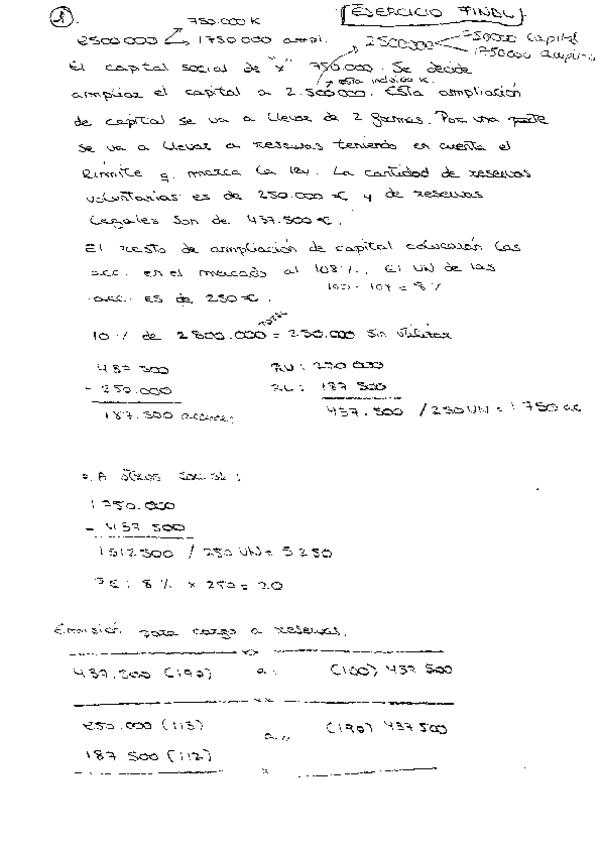 1. 750.000 K [EJERCICIO FINAL]
2500000 1750000 ampl. 2500000 750000 capital
1750000 ampli
El capital social de "x" 750.000. Se decide
esta incluido K.
ampliar el capital a 2.500.000. Esta ampliación
de capital se va a llevar de 2 formas. Por una parte
se va a llevar a reservas teniendo en cuenta el
límite q. marca la ley. La cantidad de reservas
voluntarias es de 250.000€ y de reservas
legales son de 437.500€.
El resto de ampliación de capital colocarán las
acc. en el mercado al 108%. El VN de las
100 - 108 = 8%
acc. es de 250€.
total
10% de 2500.000 = 250.000 sin utilizar
437 500 RV: 250 000
- 250.000 RL: 187 500
187.500 437.500 / 250 VN = 1750 ac
A otros social:
1750.000
- 437 500
1312.500 / 250 VN = 5250
PE: 8% x 250 = 20
Emisión para cargo a reservas.
437.500 (190) a: (100) 437 500
250.000 (113) a: (190) 437500
187 500 (112)